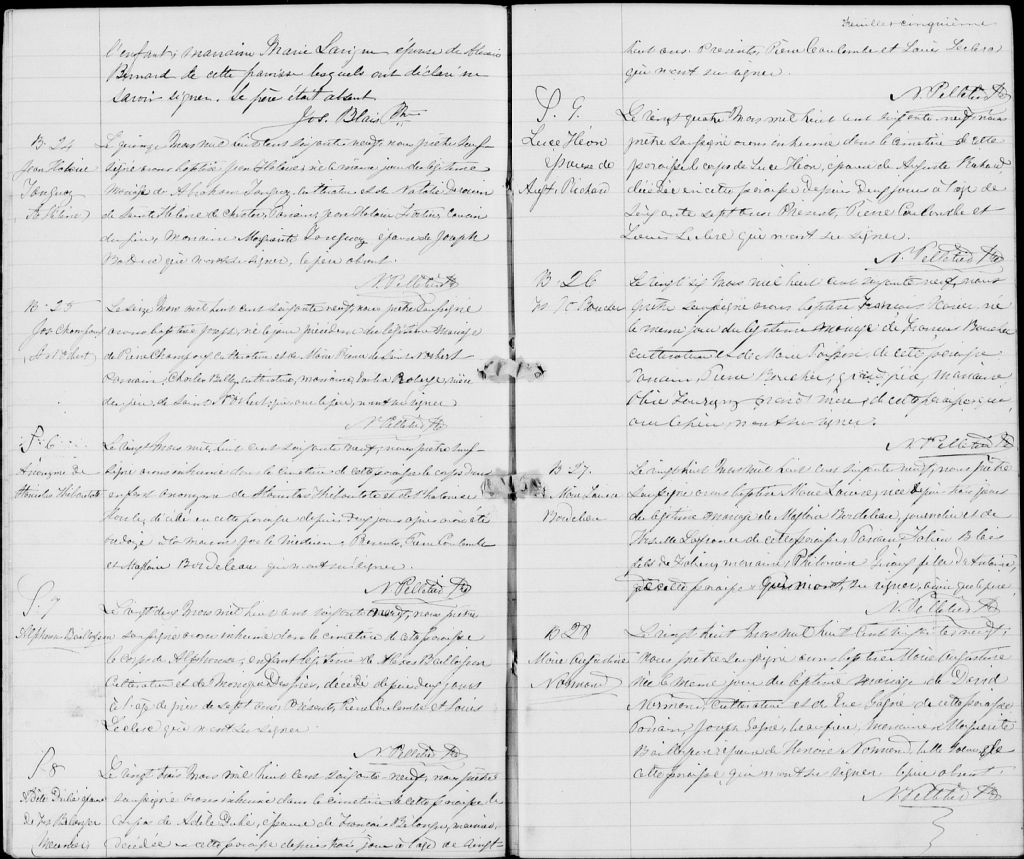 l'enfant, marraine Marie Lavigne épouse de Alexis
Bernard de cette paroisse lesquels ont déclaré ne
savoir signer. Le père était absent
Jos. Blais Ptre
B. 24
Jean Hilaire
Le quinze Mars mil huit cent soixante neuf, nous prêtre sous-
signé avons baptisé Jean Hilaire, né le même jour du légitime
mariage de Abraham cultivateur et de Natalie
de Sainte Hélène de Chester, Parrain, Jean Hilaire cousin
du père, Marraine Marguerite épouse de Joseph
qui n'ont su signer, le père absent.
N. Pelletier Ptre
B. 25
Jos Champoux
St Norbert
Le seize Mars mil huit cent soixante neuf, nous prêtre soussigné
avons baptisé Joseph, né le jour précédent du légitime mariage
de Pierre Champoux cultivateur et de Marie de Saint Norbert
Parrain, Charles cultivateur, marraine, mère
du père, de Saint Norbert qui avec le père, n'ont su signer
N. Pelletier Ptre
S. 6
Anonyme de
Stanislas Thibodeau
Le vingt Mars mil huit cent soixante neuf, nous prêtre sous-
signé avons inhumé dans le cimetière de cette paroisse le corps d'un
enfant anonyme de Stanislas et de
décédé en cette paroisse depuis deux jours après avoir été
ondoyé à la maison par le médecin. Présents, Pierre Coulombe
et Magloire Bordeleau qui n'ont su signer.
N. Pelletier Ptre
S. 7
Alphonse Baillargeon
Le vingt deux Mars mil huit cent soixante neuf, nous prêtre
soussigné avons inhumé dans le cimetière de cette paroisse
le corps de Alphonse, enfant légitime de Alexis Baillargeon
Cultivateur et de Monique Despins, décédé depuis deux jours
à l'âge de près de sept ans. Présents, Pierre Coulombe et Louis
Leclerc qui n'ont su signer
N. Pelletier Ptre
S. 8
Adèle Dubé épouse
de Frs Bélanger
Meunier
Le vingt trois Mars mil huit cent soixante neuf, nous prêtre
soussigné avons inhumé dans le cimetière de cette paroisse le
corps de Adèle Dubé, épouse de François Bélanger, meunier,
décédée en cette paroisse depuis trois jours à l'âge de vingt-
Feuillet cinquième
huit ans. Présents, Pierre Coulombe et Louis Leclerc
qui n'ont su signer.
N. Pelletier Ptre
S. 9.
Luce Héon
épouse de
Aug. Richard
Le vingt quatre Mars mil huit cent soixante neuf, nous
prêtre soussigné avons inhumé dans le cimetière de cette
paroisse le corps de Luce Héon, épouse de Auguste Richard,
décédée en cette paroisse depuis deux jours à l'âge de
soixante sept ans. Présents, Pierre Coulombe et
Louis Leclerc qui n'ont su signer.
N. Pelletier Ptre
B. 26
Le vingt six Mars mil huit cent soixante neuf, nous
prêtre soussigné avons baptisé né
le même jour du légitime mariage de François Boucher
cultivateur et de Marie de cette paroisse
Parrain, Pierre Boucher, marraine
grand'mère, de cette paroisse qui,
avec le père, n'ont su signer.
N. Pelletier Ptre
B. 27
Marie Louise
Bordeleau
Le vingt huit Mars mil huit cent soixante neuf, nous prêtre
soussigné avons baptisé Marie Louise, née depuis trois jours
du légitime mariage de Magloire Bordeleau, journalier et de
Lafrance de cette paroisse, Parrain, Fabien Blais
fils de Fabien, marraine Philomène fille de Antoine,
de cette paroisse qui n'ont su signer, ainsi que le père
N. Pelletier Ptre
B 28
Marie Augustine
Normand
Le vingt huit Mars mil huit cent soixante neuf,
nous prêtre soussigné avons baptisé Marie Augustine
née le même jour du légitime mariage de David
Normand, cultivateur et de Eve Gagné de cette paroisse
Parrain, Joseph Gagné, marraine, Marguerite
Baillargeon épouse de Honoré Normand, belle soeur de
cette paroisse qui n'ont su signer, le père absent.
N. Pelletier Ptre